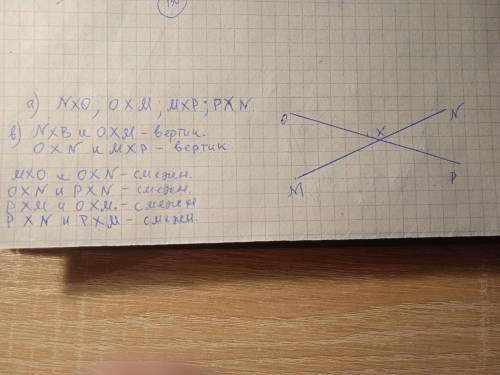 190
а) NXO; OXM; MXP; PXN.
в) NXB и OXM – вертик.
OXN и MXP – вертик.
MXO и OXN – смежн.
OXN и PXN – смежн.
PXM и OXM. – смежн
PXN и PXM – смежн.
O
X
N
M
P